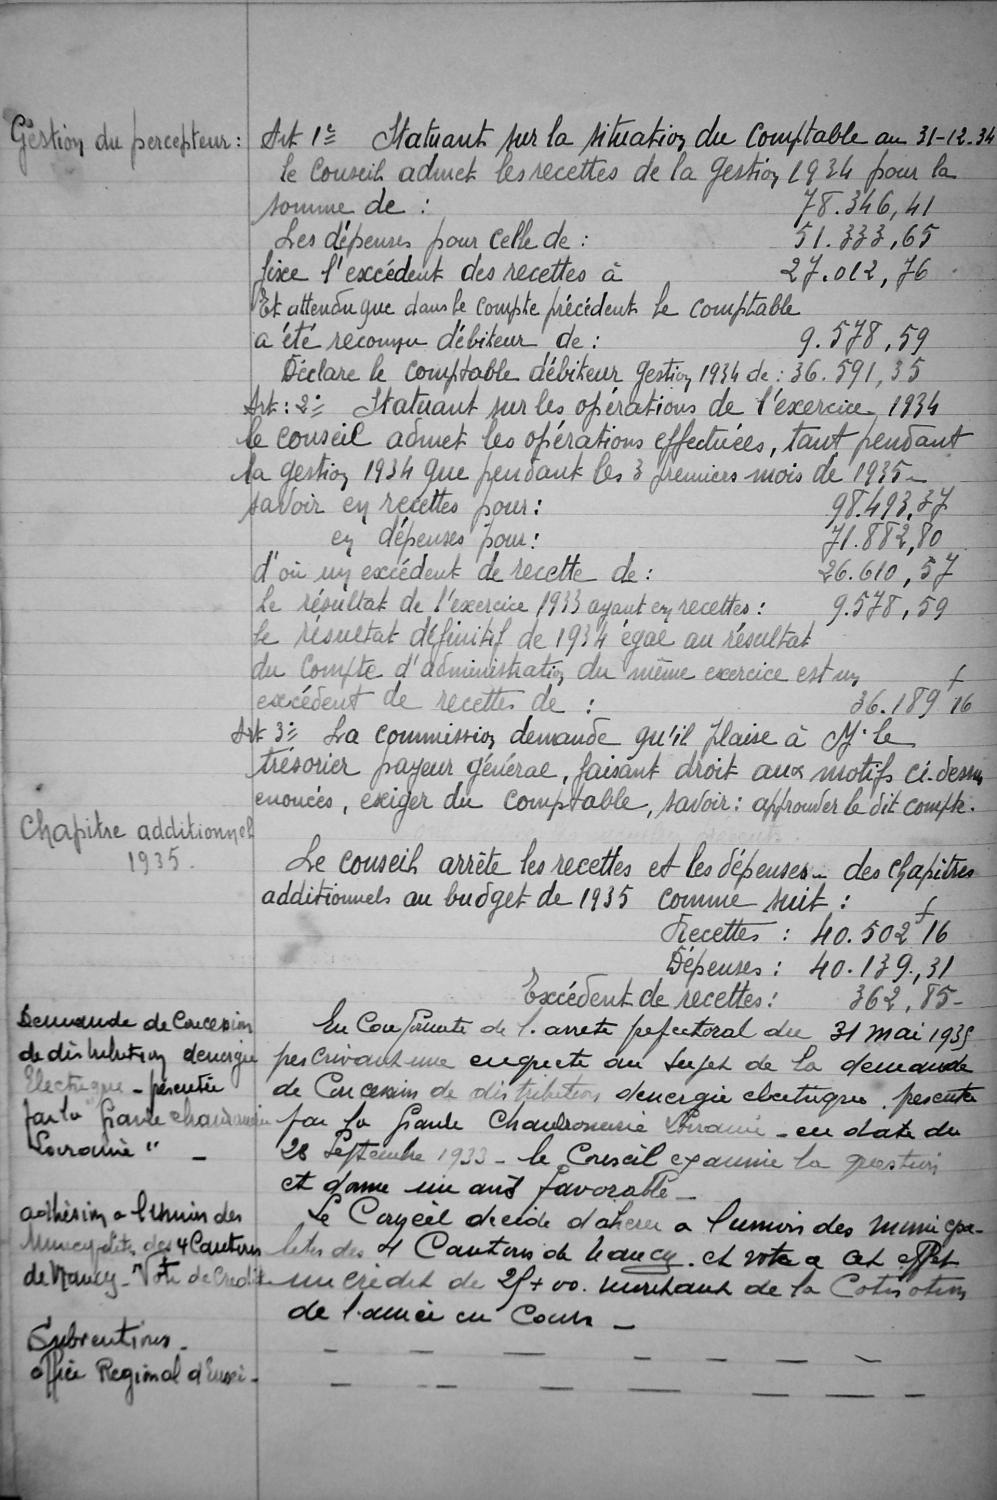 Gestion du percepteur :
Art 1er Statuant sur la situation du comptable au 31-12-34
le conseil admet les recettes de la gestion 1934 pour la
somme de : 78.346,41
Les dépenses pour celle de : 51.333,65
fixe l'excédent des recettes à 27.012,76
Et attendu que dans le compte précédent le comptable
a été reconnu débiteur de : 9.578,59
Déclare le comptable débiteur gestion 1934 de : 36.591,35
Art : 2° Statuant sur les opérations de l'exercice 1934
le conseil admet les opérations effectuées, tant pendant
la gestion 1934 que pendant les 3 premiers mois de 1935 -
savoir en recettes pour : 98.493,37
en dépenses pour : 71.882,80
d'où un excédent de recette de : 26.610,57
Le résultat de l'exercice 1933 ayant en recettes : 9.578,59
le résultat définitif de 1934 égal au résultat
du compte d'administration du même exercice est un
excédent de recettes de : 36.189 f 16
Art 3° La commission demande qu'il plaise à M. le
trésorier payeur général, faisant droit aux motifs ci-dessus
enoncés, exiger du comptable, savoir : approuver le dit compte.
Chapitre additionnel
1935.
Le conseil arrête les recettes et les dépenses - des chapitres
additionnels au budget de 1935 comme suit :
Recettes : 40.502 f 16
Dépenses : 40.139,31
Excédent de recettes : 362,85 -
Demande de Concession
de distribution denergie
Electrique - présentée
par la Grande chaudronnerie
Lorraine " -
En Conformite de l'arrete prefectoral du 31 mai 1935
prescrivant une enquete au sujet de la demande
de Concession de distribution denergie electrique presentée
par la Grande Chaudronnerie Lorraine - en date du
28 Septembre 1933 - le Conseil examine la question
et donne un avis favorable -
adhésion a l'Union des
Municipalités des 4 Cantons
de Nancy - Vote de Crédit
Le Conseil decide d'aherer a l'union des municipa-
lites des 4 Cantons de Nancy. et vote a cet effet
un crédit de 25 f 00. montant de la Cotisation
de l'année en Cours -
Subventions -
office Regional d'Ensei -